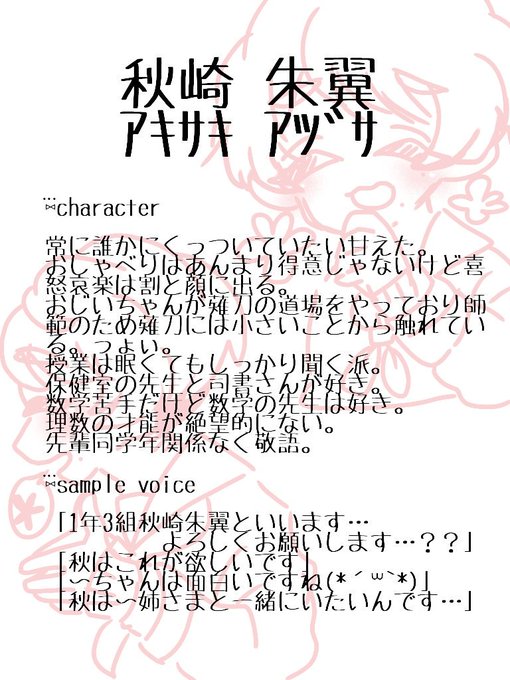 秋崎 朱翼
ｱｷｻｷ ｱﾂﾞｻ
character
常に誰かにくっついていたい甘えた。
おしゃべりはあんまり得意じゃないけど喜
怒哀楽は割と顔に出る。
おじいちゃんが薙刀の道場をやっており師
範のため薙刀には小さいことから触れてい
る。つょい。
授業は眠くてもしっかり聞く派。
保健室の先生と司書さんが好き。
数学苦手だけど数学の先生は好き。
理数の才能が絶望的にない。
先輩同学年関係なく敬語。
sample voice
「1年3組秋崎朱翼といいます…
よろしくお願いします…？？」
「秋はこれが欲しいです」
「〜ちゃんは面白いですね(*´꒳`*)」
「秋は〜姉さまと一緒にいたいんです…」